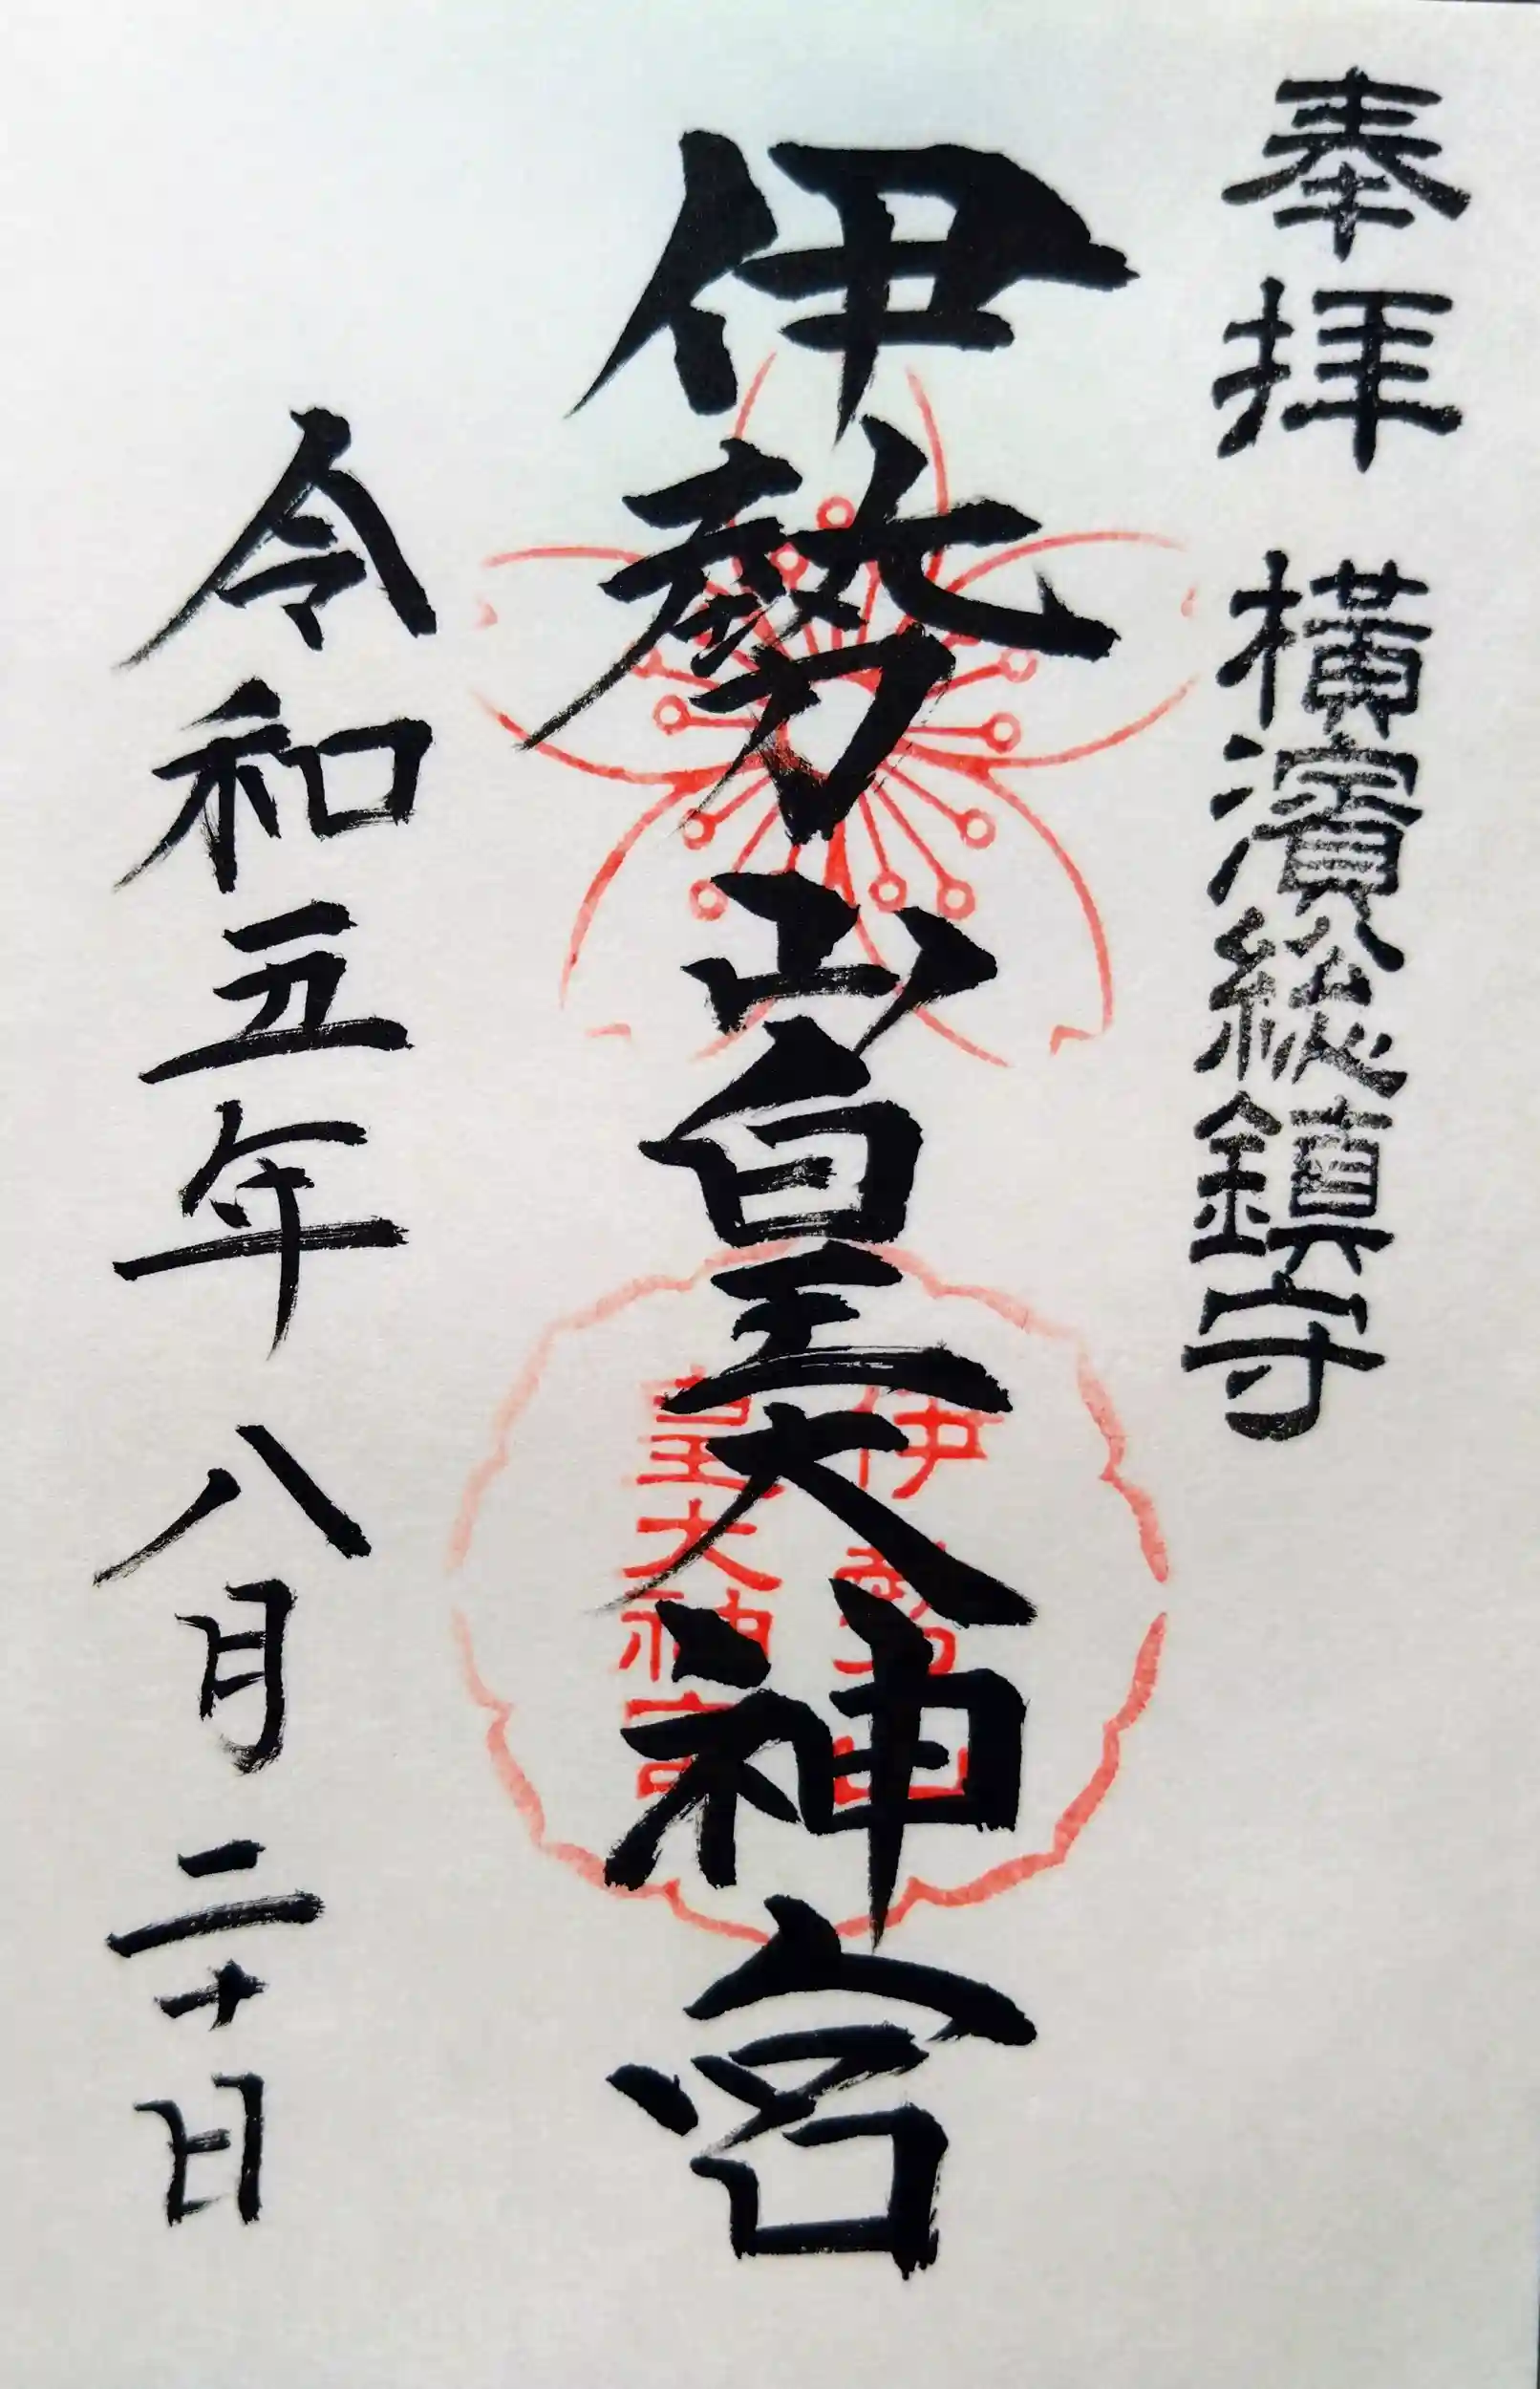 奉拝 横濱総鎮守
伊勢山皇大神宮
伊勢山
皇大神宮
令和五年八月二十日